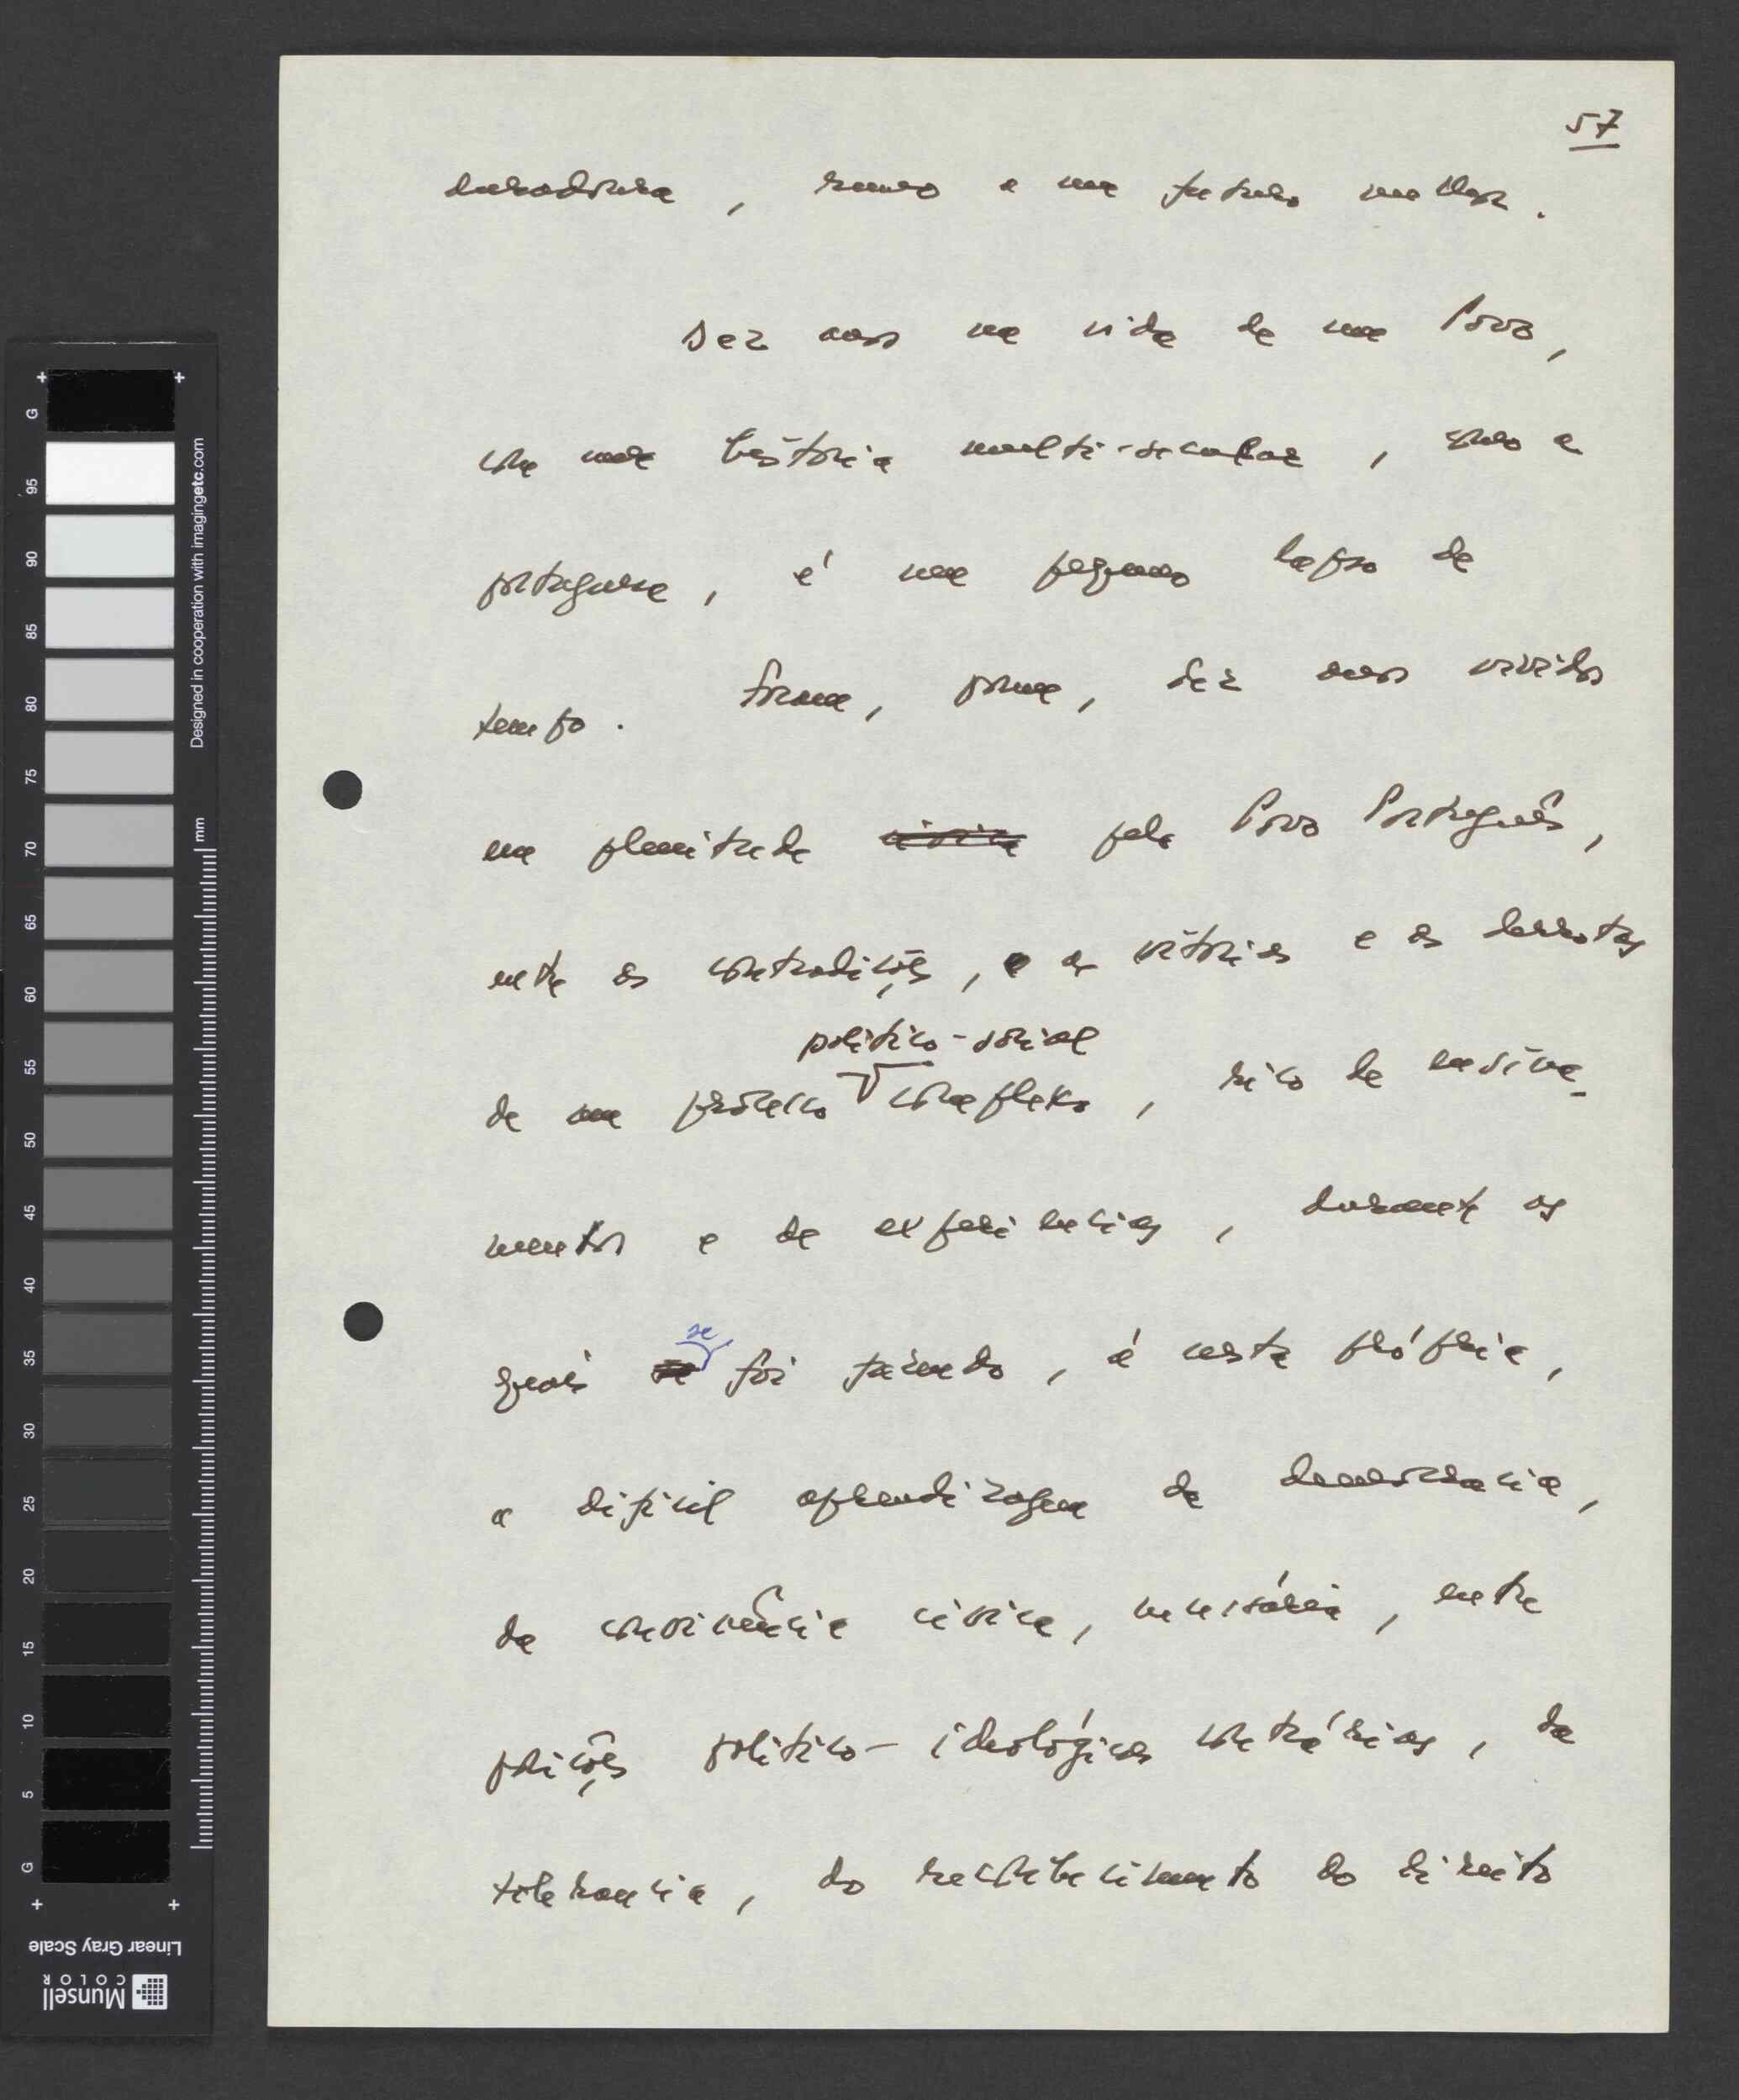 57
duradoura, rumo a um futuro melhor.
Dez anos na vida de um Povo,
com uma história multi-secular, como a
portuguesa, é um pequeno lapso de
tempo. Foram, porém, dez anos vividos
em plenitude cívica pelo Povo Português,
entre as contradições, e as vitórias e as derrotas
político-social
de um processo complexo, rico de ensina-
mentos e de experiências, durante os
quais se se foi fazendo, é certo própria,
a difícil aprendizagem da democracia,
da convivência cívica, necessária, entre
posições político-ideológicas contrárias, da
tolerancia, do reconhecimento do direito
G
95
90
85
80
75
70
65
60
55
50
45
40
35
30
25
20
15
10
5
G
mm
Designed in cooperation with imagingetc.com
Linear Gray Scale
Munsell
COLOR